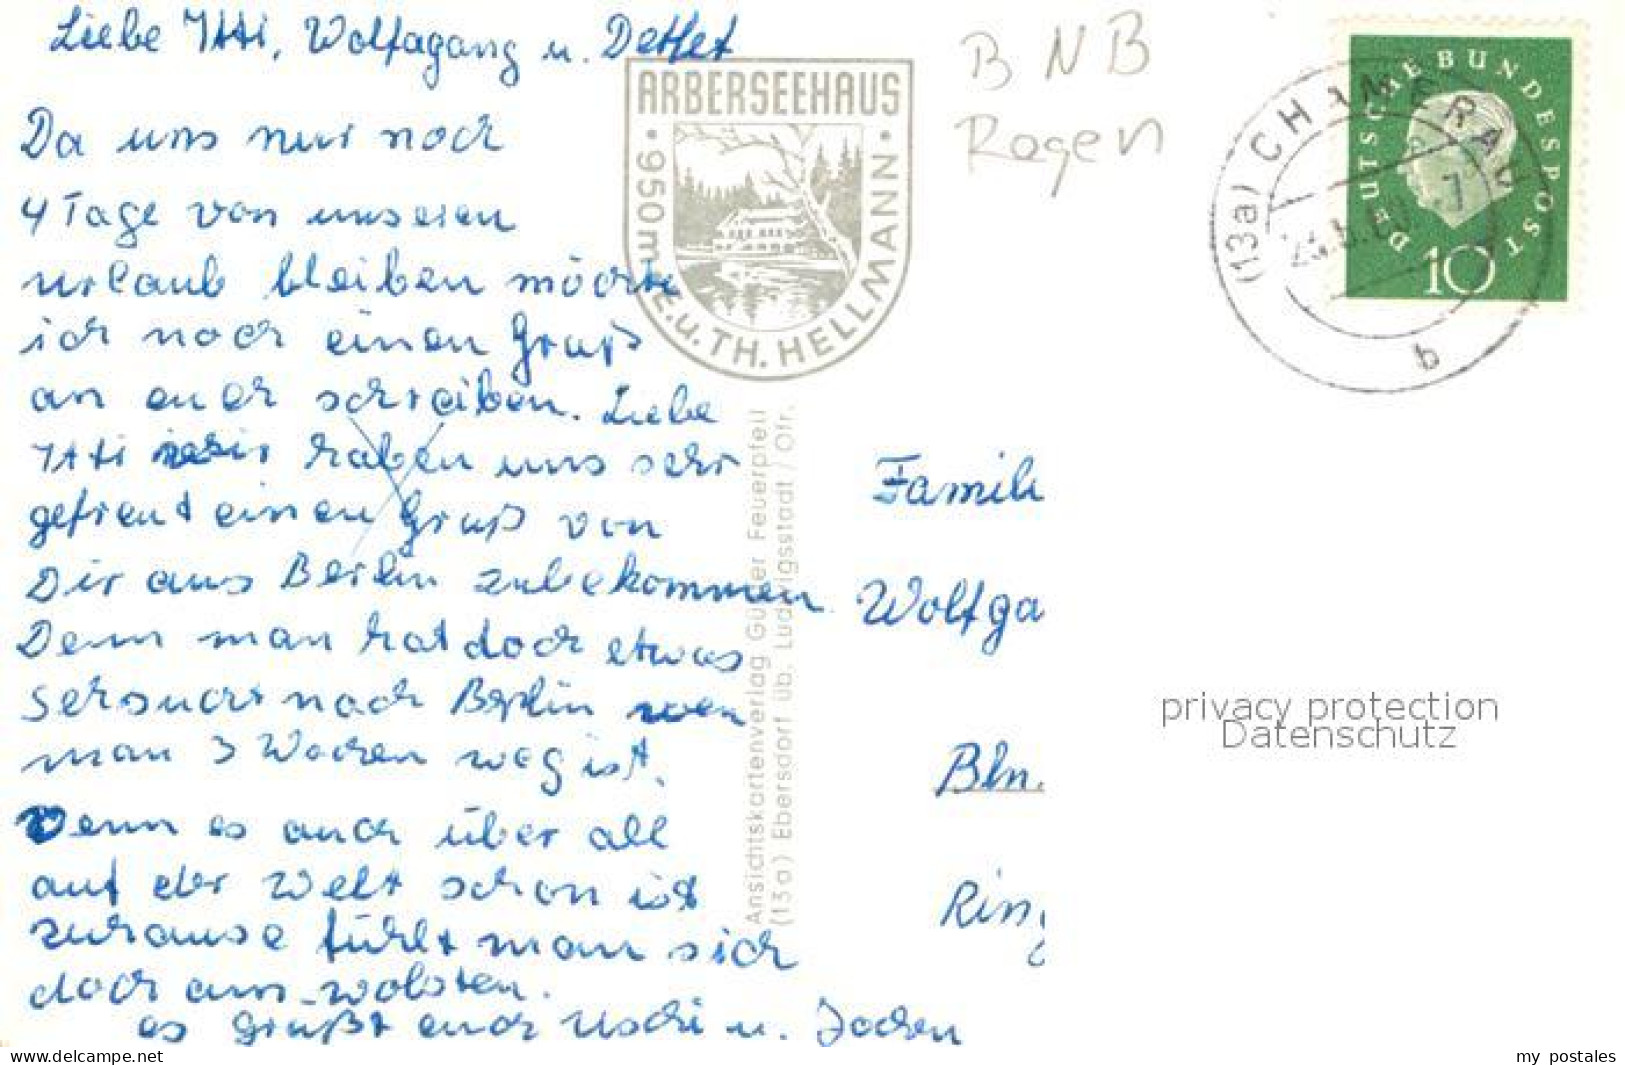 Liebe Itti, Wolfagang u. Detlef
Da uns nur noch
4 Tage von unseren
urlaub bleiben möchte
ich noch einen Gruß
an euch schreiben. Liebe
Itti wir haben uns sehr
gefreut einen Gruß von
Dir aus Berlin zubekommen
Denn man hat doch etwas
sehsucht nach Berlin wen
man 3 Wochen weg ist.
Denn es auch über all
auf der Welt schön ist
zuhause fühlt man sich
doch am wolsten.
es grüßt euch Uschi u. Jochen
ARBERSEEHAUS
• 950m • E. u. TH. HELLMANN •
Ansichtskartenverlag Günter Feuerpfeil
(13a) Ebersdorf üb. Ludwigsstadt / Ofr.
BNB
Rogen
(13a) CHAMERAU
b
DEUTSCHE BUNDESPOST
10
Famili
Wolfga
Bln.
Ring
privacy protection
Datenschutz
www.delcampe.net
my postales